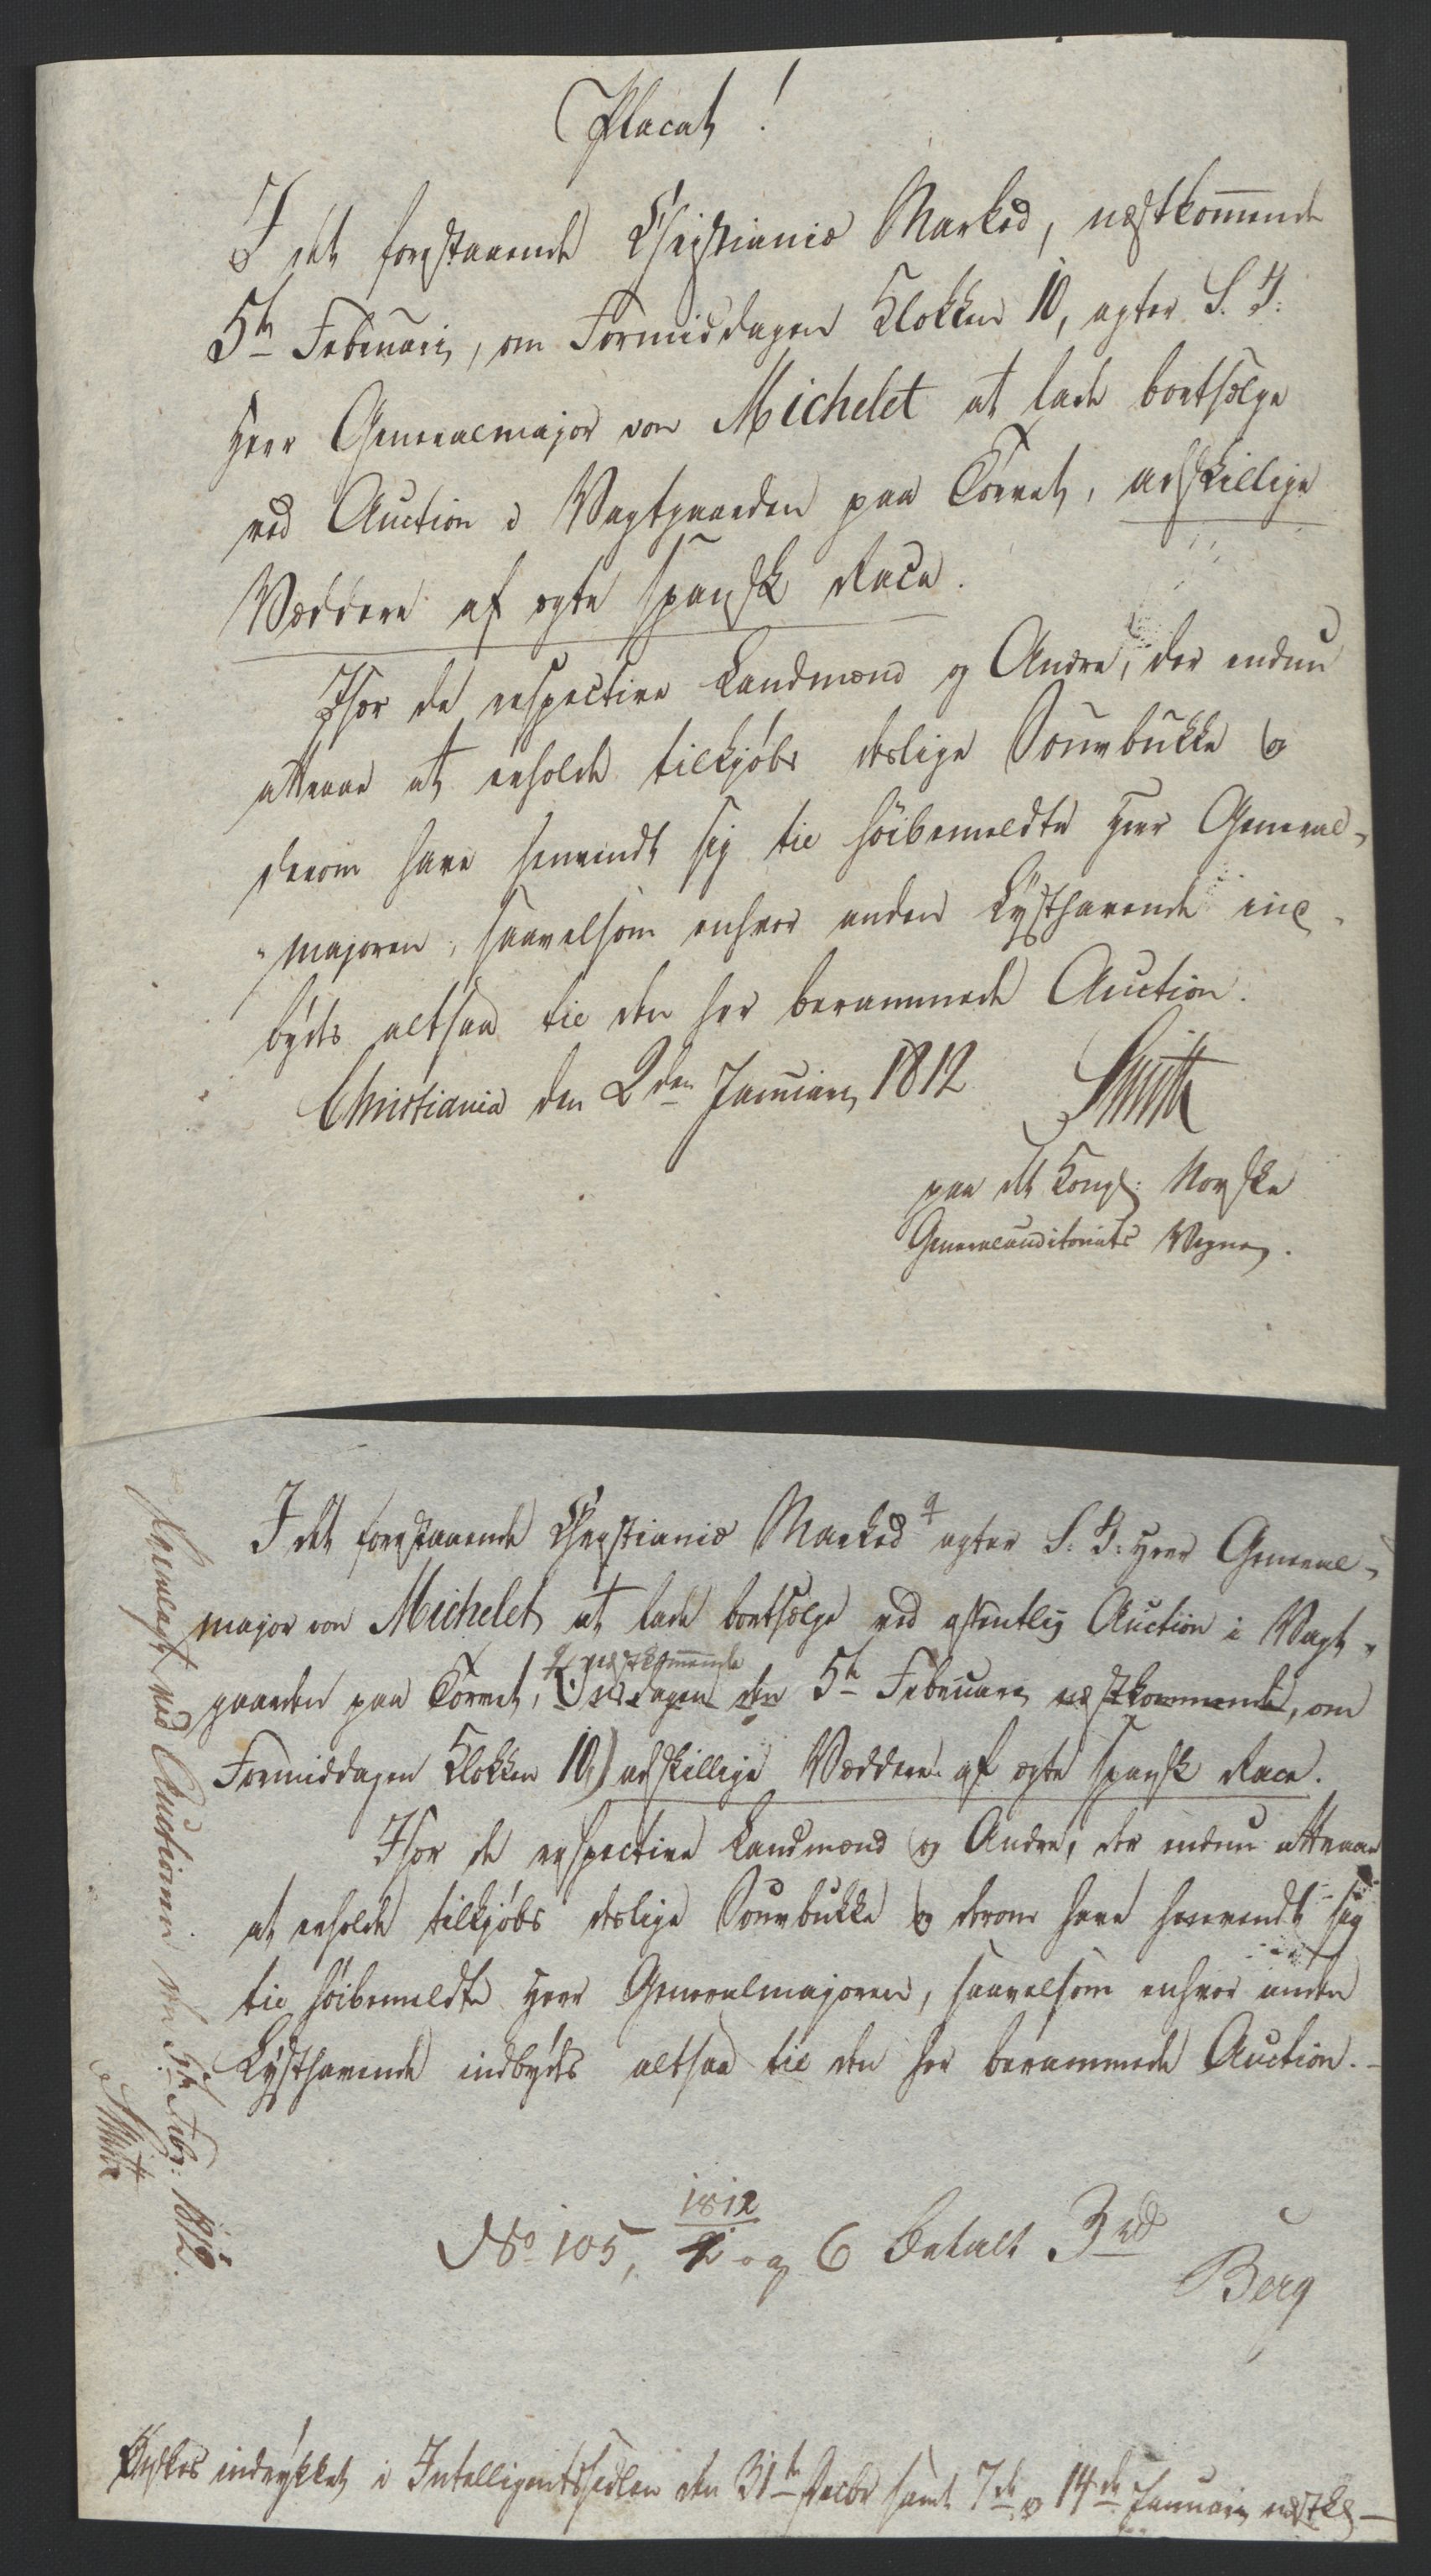 Placat!
I det forestaaende Christianiæ Marked, næstkommende
5te Februarii, om Formiddagen Klokken 10, agter S. T.
Herr Generalmajor von Michelet at lade bortsælge
ved Auction i Vagtgaarden paa Torvet, adskillige
Væddere af ægte spansk Race.
Især de respective Landmænd og Andre, der endnu
attraae at erholde tilkjøbs deslige Souvbukke og
derom have henvendt sig til høibemeldte Herr General-
majoren, saavelsom enhver anden Lysthavende ind-
bydes altsaa til den her berammede Auction.
Christiania den 2den Januarii 1812
Smith
paa det Kongl: Norske
Generalauditoriats Vegne.
I det forestaaende Christianiæ Marked agter S. T. Herr General-
major von Michelet at lade bortsælge ved offentlig Auction i Vagt-
næstkommende
gaarden paa Torvet, Onsdagen den 5te Februarii næstkommende, om
Formiddagen Klokken 10,) adskillige Væddere af ægte spansk Race.
Især de respective Landmænd og Andre, der endnu attraae
at erholde tilkjøbs deslige Souvbukke og derom have henvendt sig
til høibemeldte Herr Generalmajoren, saavelsom enhver anden
Lysthavende indbydes altsaa til den her berammede Auction.
Fremlagt ved Auctionen den 5te Febr: 1812.
Smith
No 105, 1812
2 og 6 betalt 3 rd
Berg
Ønskes indrykket i Intelligentssedlen den 31te Decbr samt 7de og 14de Januarii næstk